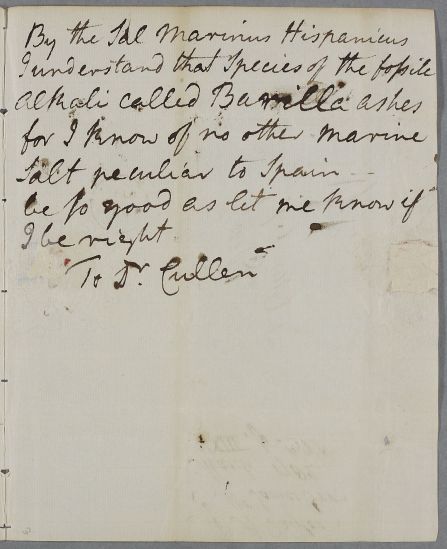 By the Sal Marinus Hispanicus
I understand that Species of the fossile
alkali called Barrilla ashes
for I know of no other marine
Salt peculiar to Spain --
be so good as let me know if
I be right
To Dr. Cullen